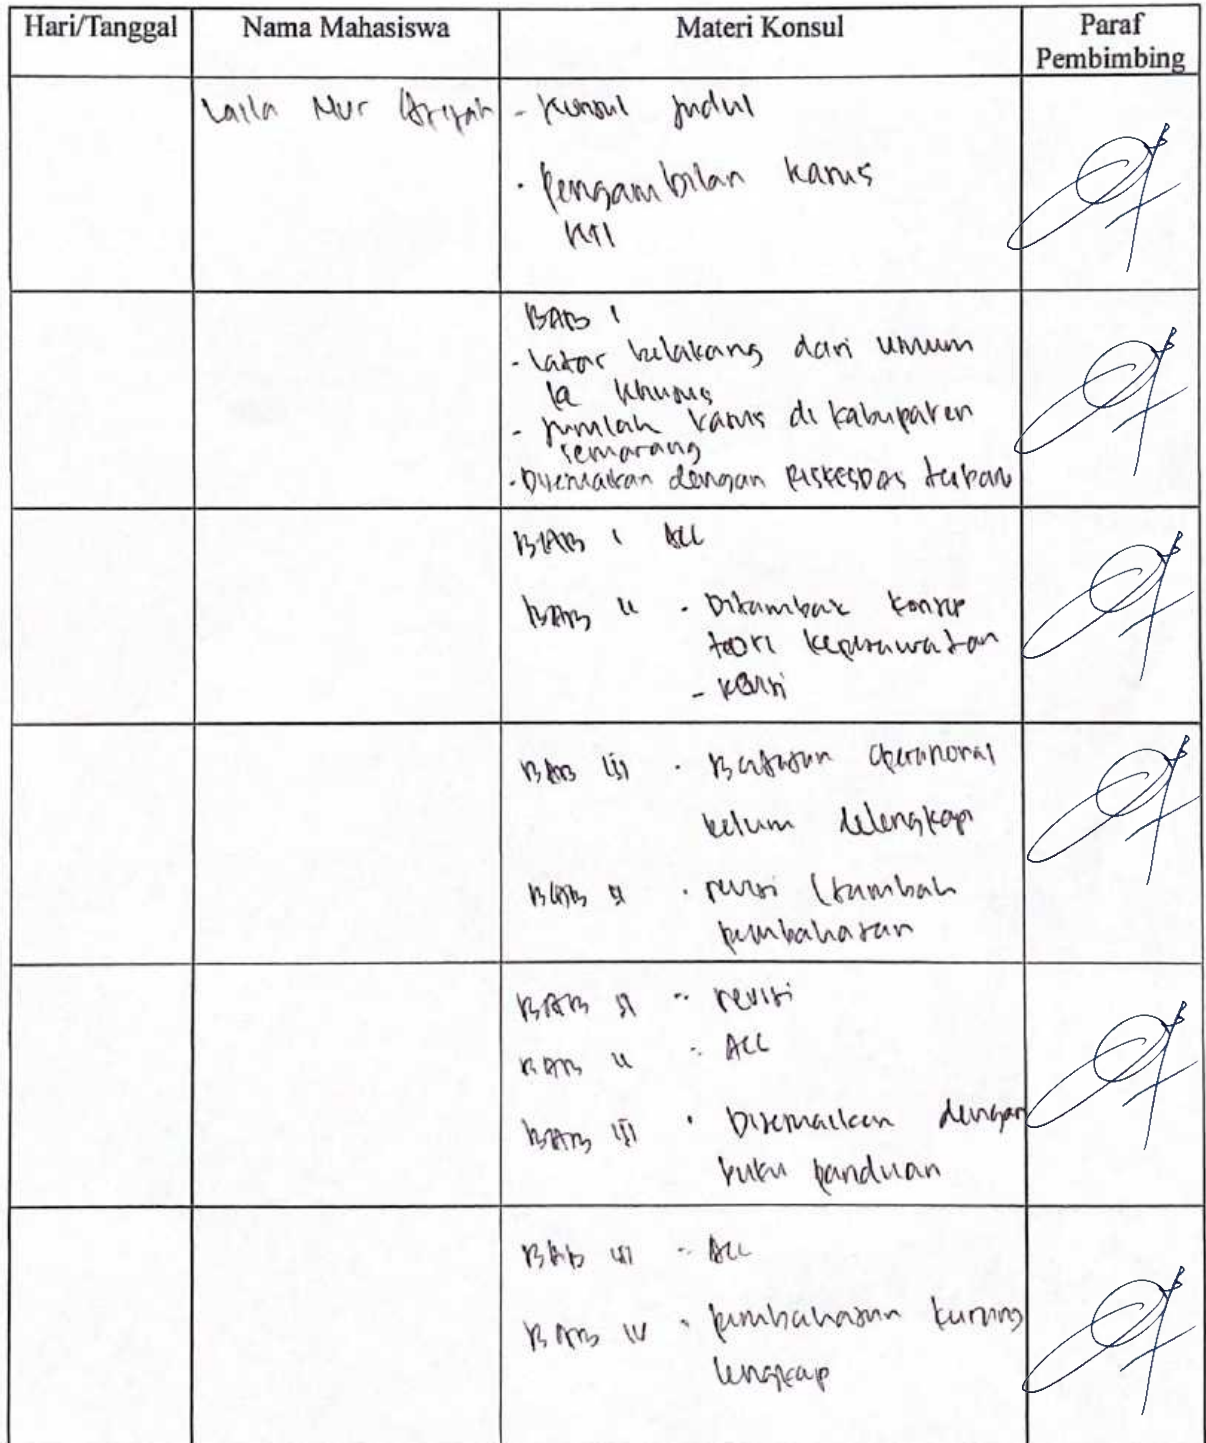 Hari/Tanggal Nama Mahasiswa Materi Konsul Paraf
Pembimbing
Laila Nur - Konsul judul
- Pengambilan kasus
KTI
BAB I
- latar belakang dari umum
ke khusus
- jumlah kasus di kabupaten
semarang
- Disesuaikan dengan RISKESDAS
BAB I ACC
BAB II - Ditambax konsep
teori keperawatan
-
BAB III - Batasan Operasional
belum dilengkapi
BAB - revisi (tambah
pembahasan
BAB - revisi
BAB II - ACC
BAB III - Disesuaikan dengan
buku panduan
BAB III - ACC
BAB IV - pembahasan kurang
lengkap